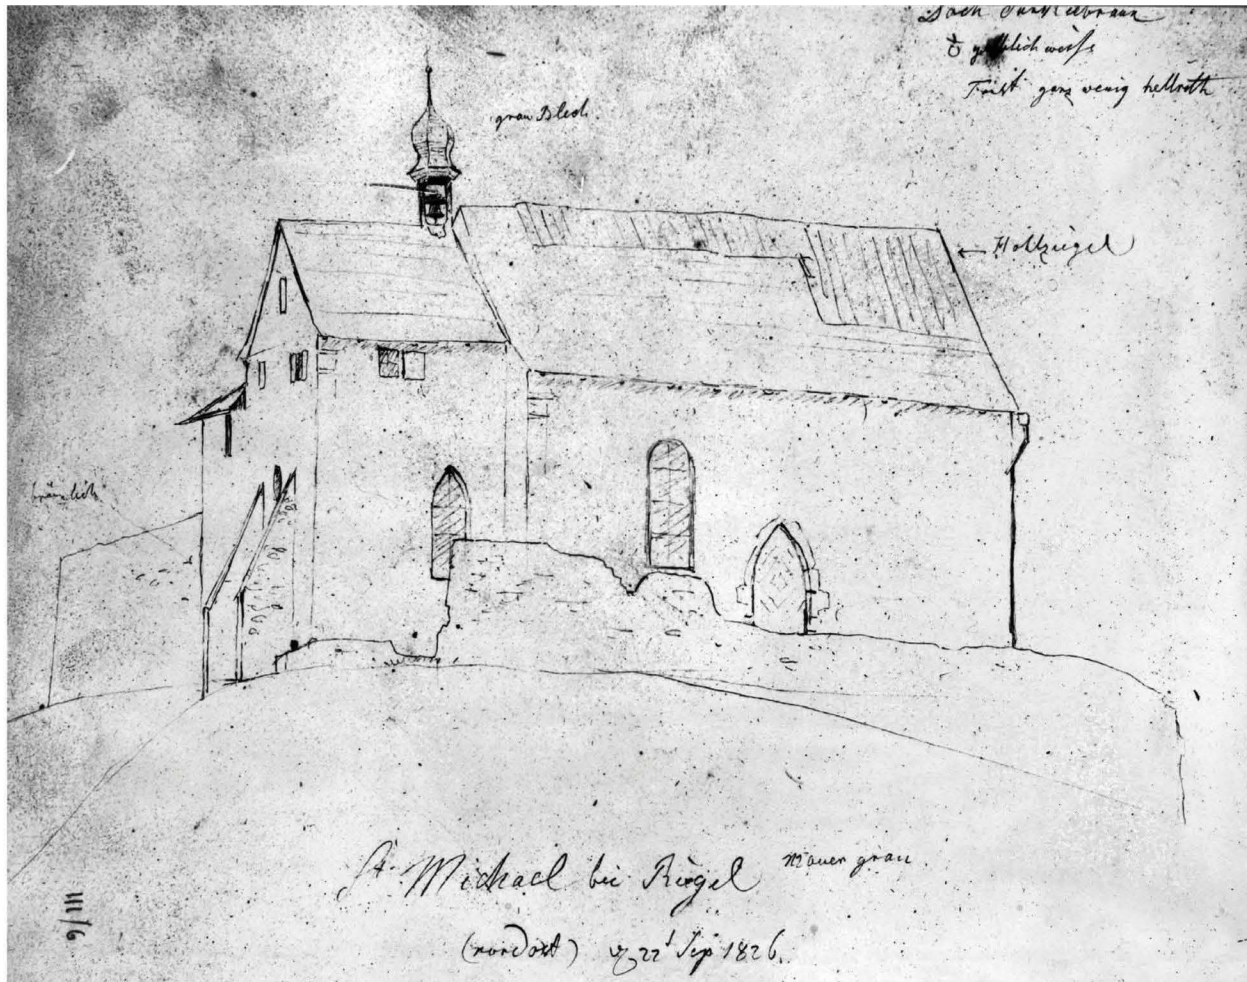 Dach dunkelbraun
gelblich weiß
First ganz wenig hellroth
grau Blech.
Hohlziegel
bräunlich
St. Michael bei Riegel
Mauer grau
(nordost) 22t Sep 1826.
III/6